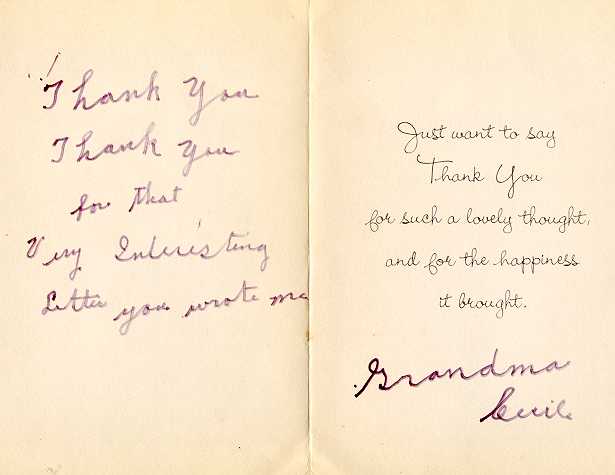 Thank You
Thank you
for that
Very Interesting
Letter you wrote me
Just want to say
Thank You
for such a lovely thought,
and for the happiness
it brought.
Grandma
Cecile